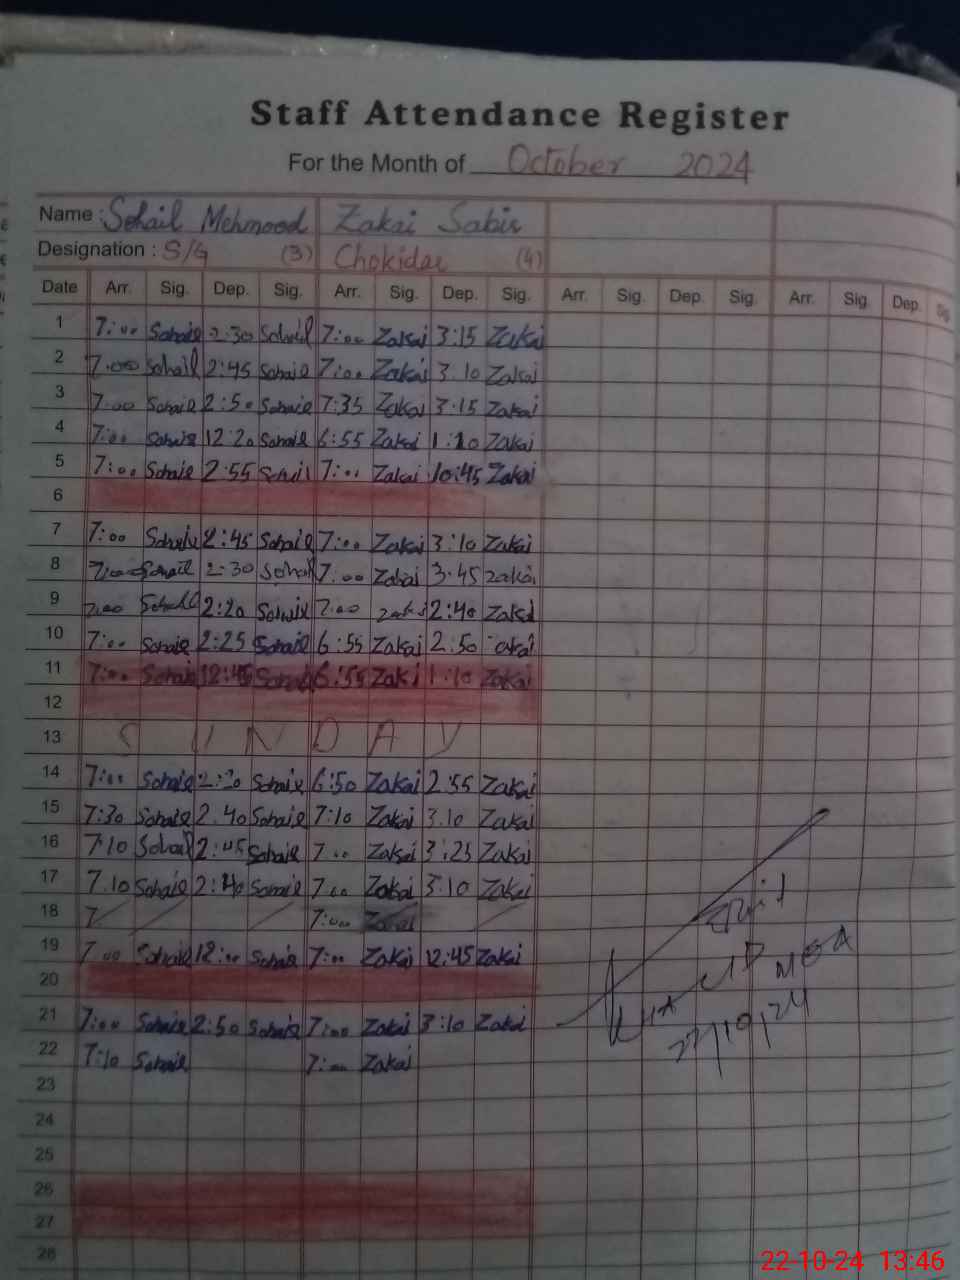 Staff Attendance Register
For the Month of October 2024
Name : Sohail Mehmood Zakai Sabir
Designation : S/G (3) Chokidar (4)
Date Arr. Sig. Dep. Sig. Arr. Sig. Dep. Sig. Arr. Sig. Dep. Sig. Arr. Sig. Dep. Sig.
1 7:00 Sohail 2:30 Sohail 7:00 Zakai 3:15 Zakai
2 7:00 Sohail 2:45 Sohail 7:00 Zakai 3:10 Zakai
3 7:00 Sohail 2:50 Sohail 7:35 Zakai 3:15 Zakai
4 7:00 Sohail 12:20 Sohail 6:55 Zakai 1:20 Zakai
5 7:00 Sohail 2:55 Sohail 7:00 Zakai 10:45 Zakai
6
7 7:00 Sohail 2:45 Sohail 7:00 Zakai 3:10 Zakai
8 7:00 Sohail 2:30 Sohail 7:00 Zakai 3:45 Zakai
9 7:00 Sohail 2:20 Sohail 7:00 Zakai 2:40 Zakai
10 7:00 Sohail 2:25 Sohail 6:55 Zakai 2:50 Zakai
11 7:00 Sohail 12:45 Sohail 6:55 Zakai 1:10 Zakai
12
13 SUNDAY
14 7:00 Sohail 2:20 Sohail 6:50 Zakai 2:55 Zakai
15 7:30 Sohail 2:40 Sohail 7:10 Zakai 3:10 Zakai
16 7:10 Sohail 2:45 Sohail 7:00 Zakai 3:25 Zakai
17 7:10 Sohail 2:40 Sohail 7:00 Zakai 3:10 Zakai
18 7 7:00 Zakai
19 7:00 Sohail 12:00 Sohail 7:00 Zakai 12:45 Zakai
20
21 7:00 Sohail 2:50 Sohail 7:00 Zakai 3:10 Zakai
22 7:10 Sohail 7:00 Zakai
MEA
22/10/24
23
24
25
26
27
28
22-10-24 13:46